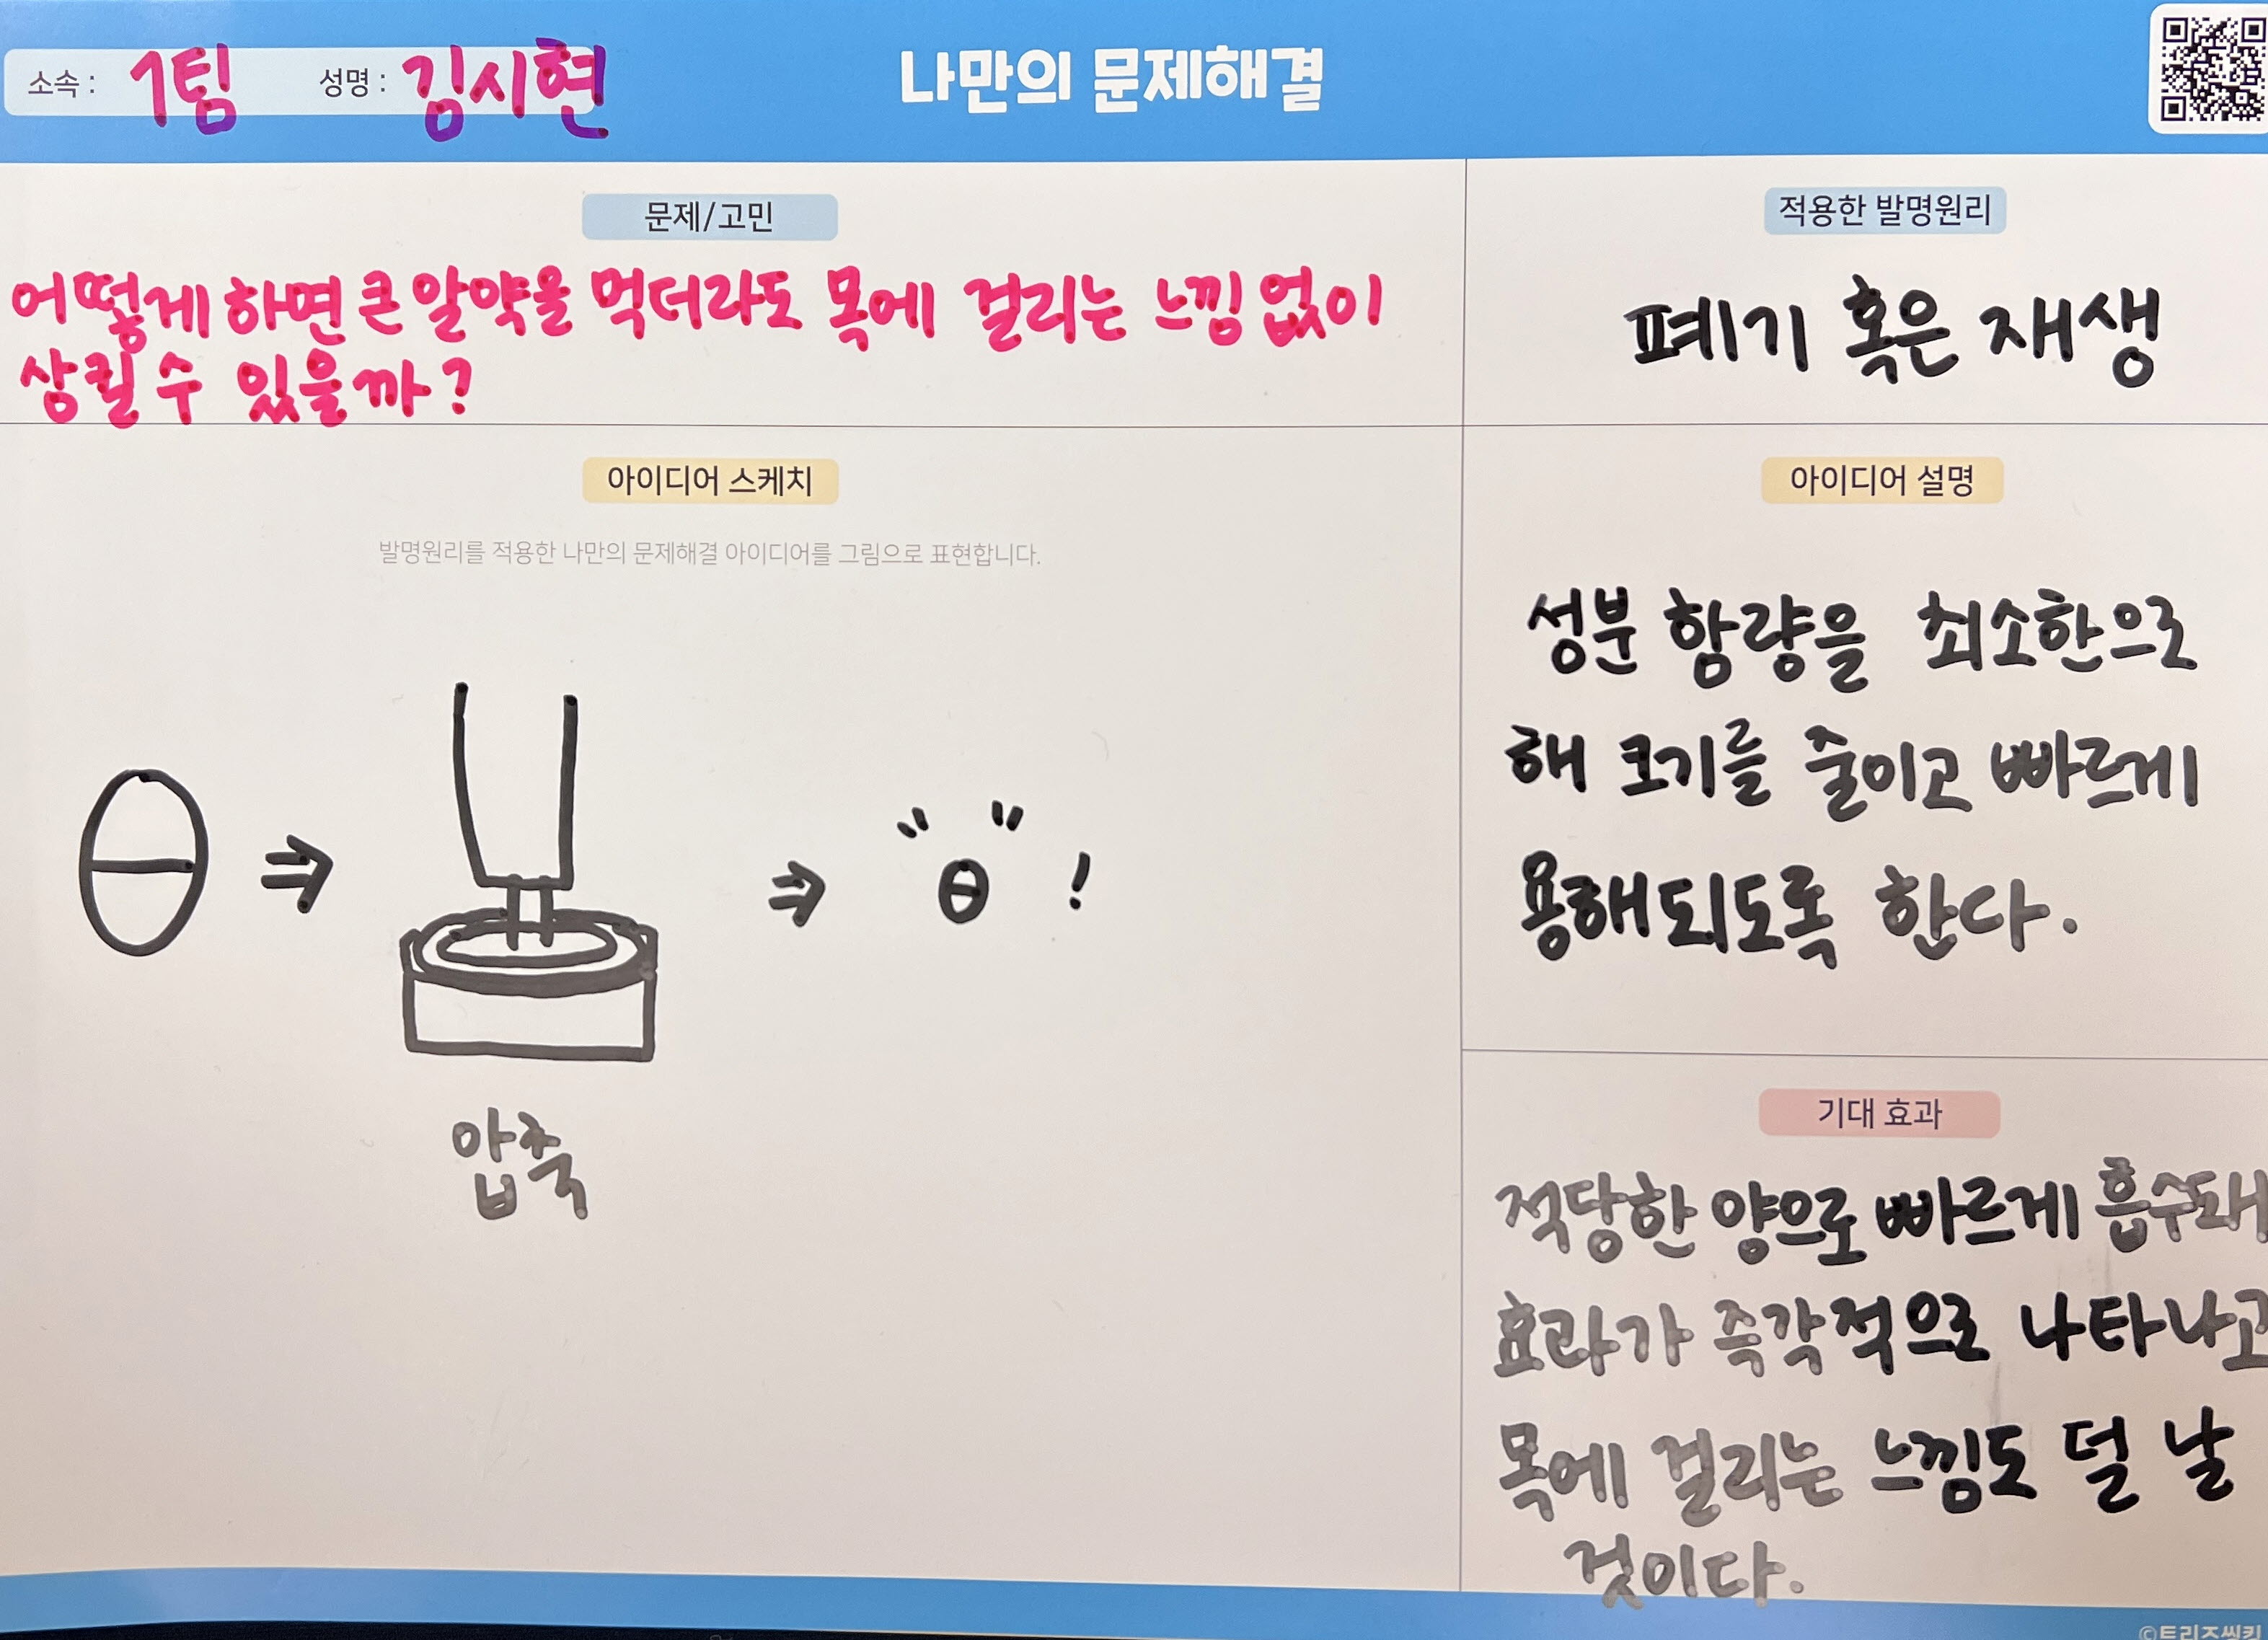 소속 : 1팀 성명 : 김시현
나만의 문제해결
문제/고민
어떻게 하면 큰 알약을 먹더라도 목에 걸리는 느낌 없이
삼킬 수 있을까?
적용한 발명원리
폐기 혹은 재생
아이디어 스케치
발명원리를 적용한 나만의 문제해결 아이디어를 그림으로 표현합니다.
압축
아이디어 설명
성분 함량을 최소한으로
해 크기를 줄이고 빠르게
용해되도록 한다.
기대 효과
적당한 양으로 빠르게 흡수돼
효과가 즉각적으로 나타나고
목에 걸리는 느낌도 덜 날
것이다.
©트리즈씽킹